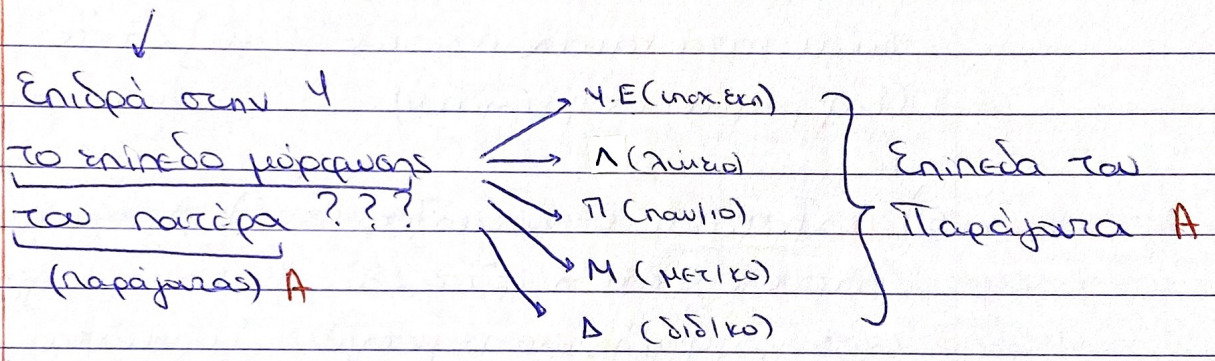 Επιδρά στην Υ
το επίπεδο μόρφωσης
του πατέρα ???
(παράγοντας) Α
Υ.Ε (υποχ.εκπ)
Λ (λύκειο)
Π (παν/ιο)
Μ (μετ/κο)
Δ (διδ/κο)
Επίπεδα του
Παράγοντα Α